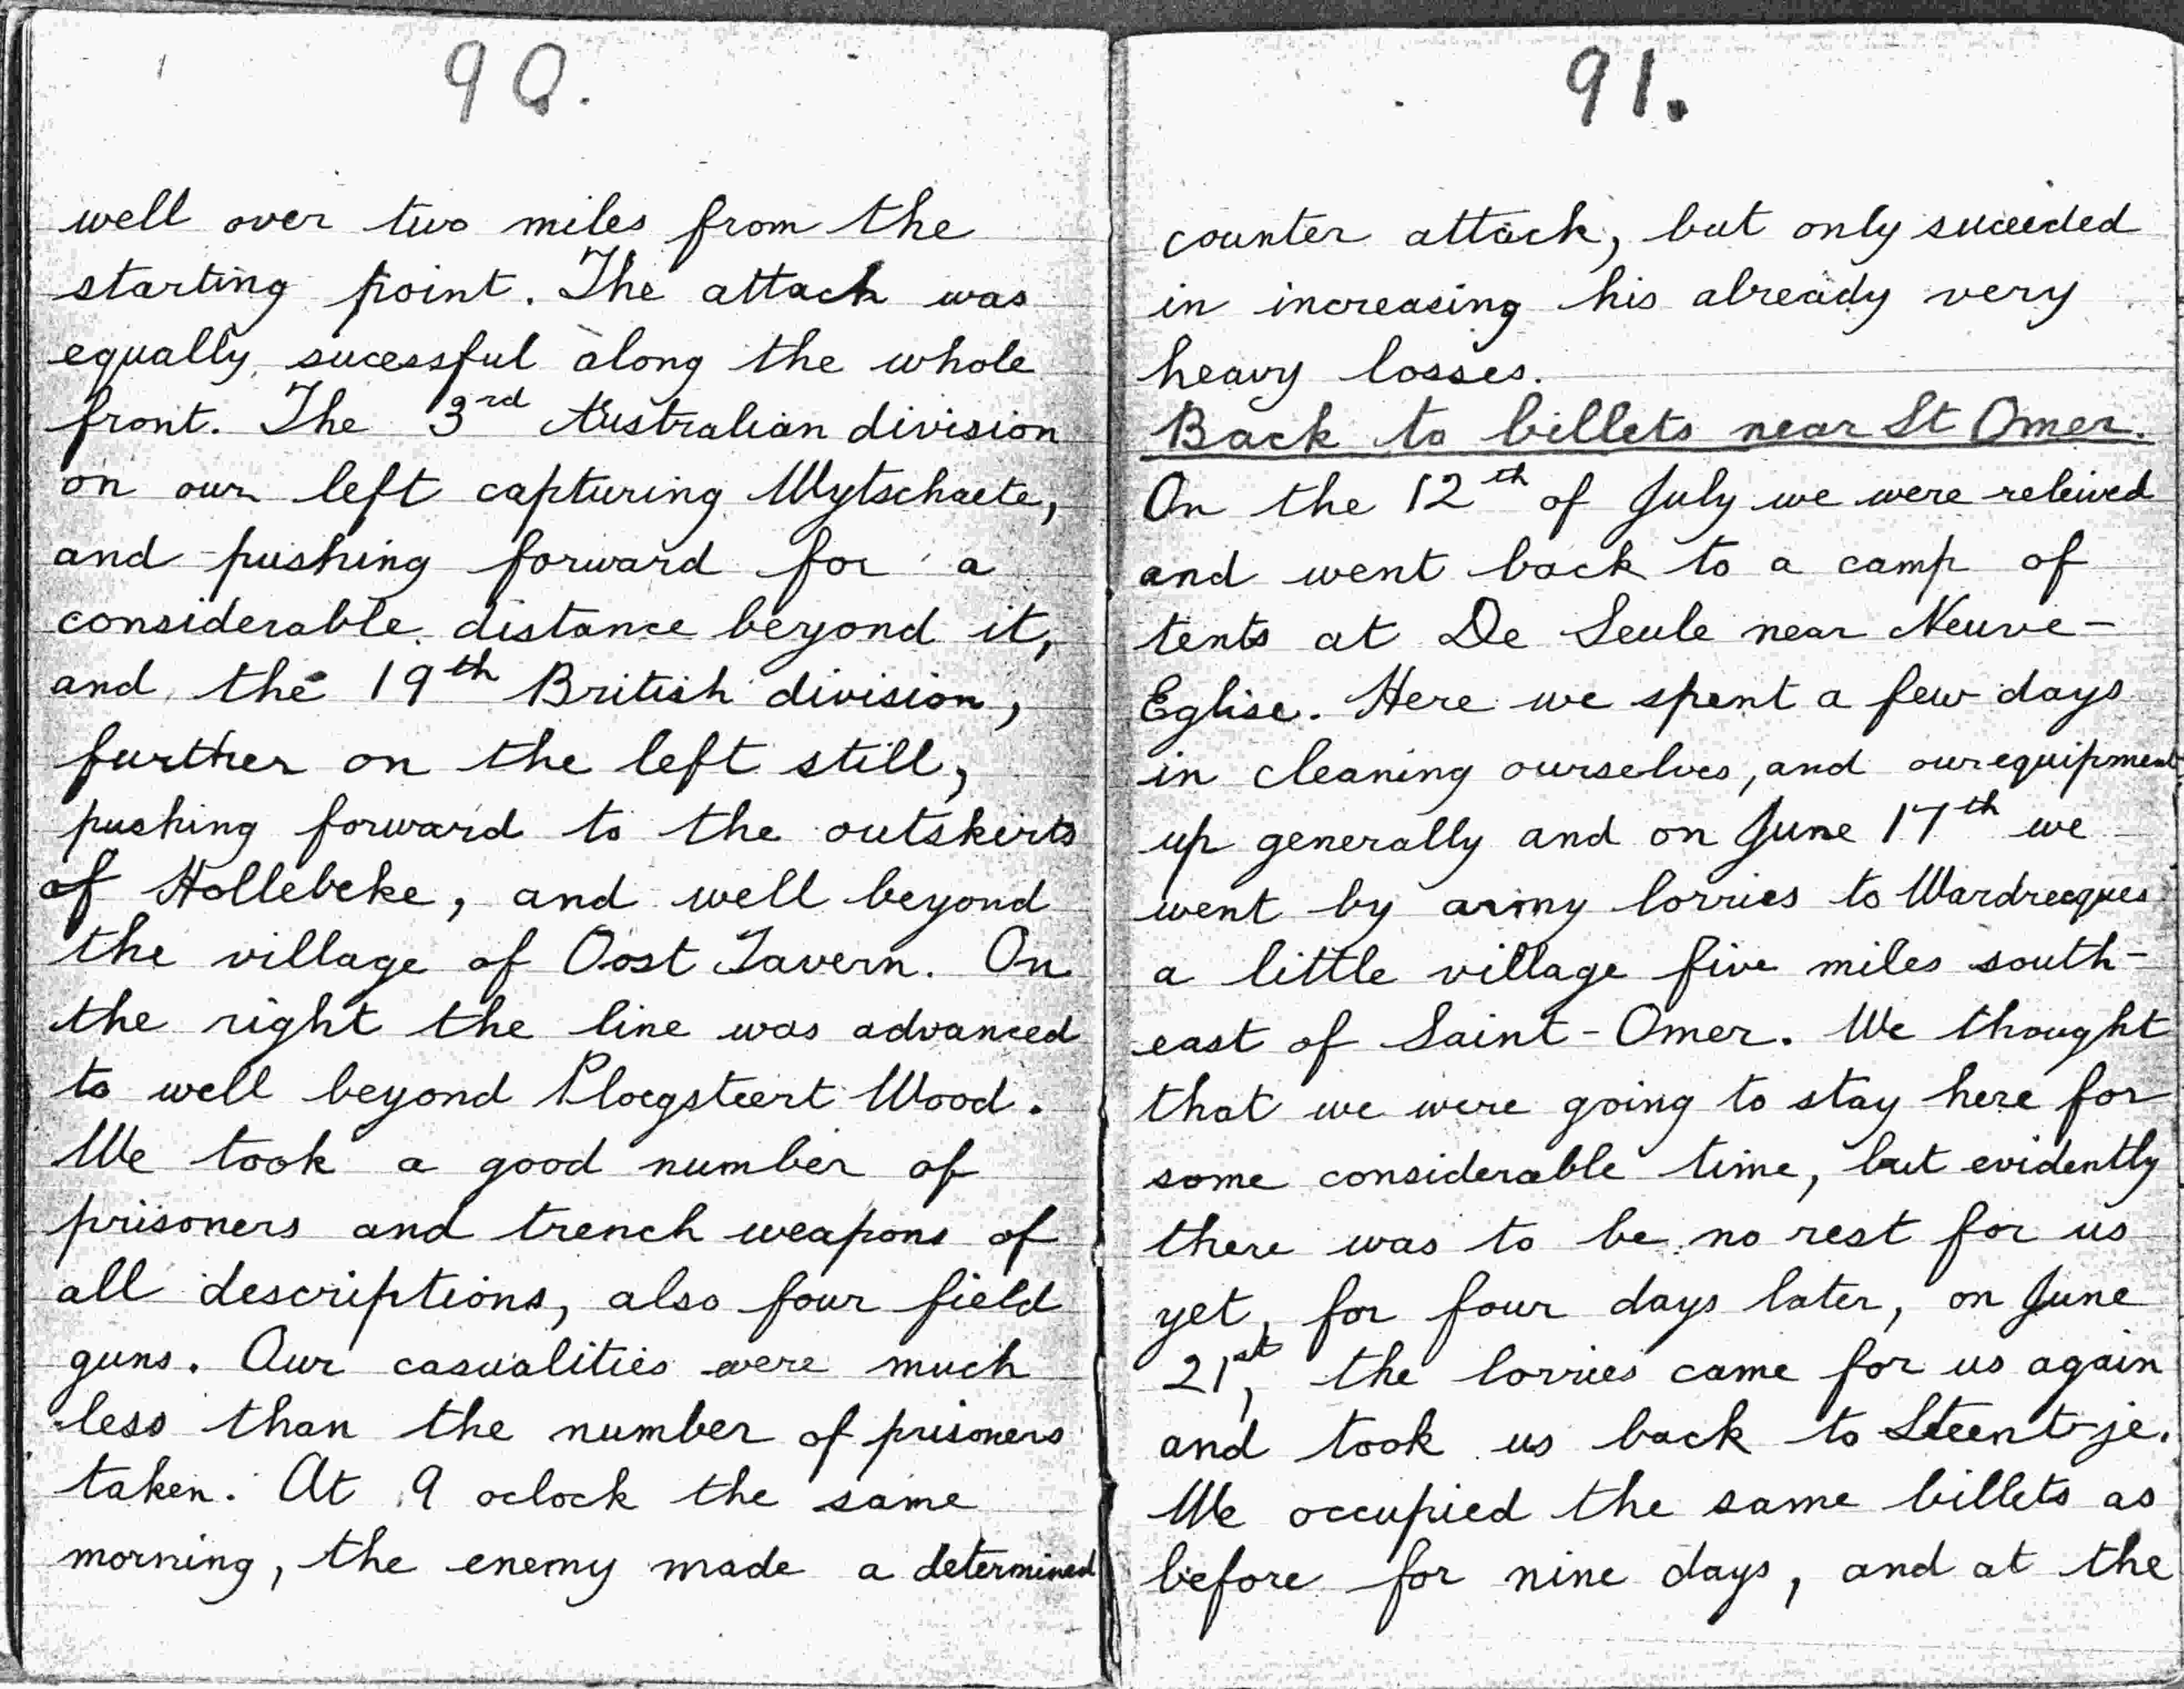 90.
well over two miles from the
starting point. The attack was
equally sucessful along the whole
front. The 3rd Australian division
on our left capturing Wytschaete,
and pushing forward for a
considerable distance beyond it,
and the 19th British division,
further on the left still,
pushing forward to the outskirts
of Hollebeke, and well beyond
the village of Oost Tavern. On
the right the line was advanced
to well beyond Ploegsteert Wood.
We took a good number of
prisoners and trench weapons of
all descriptions, also four field
guns. Our casualities were much
less than the number of prisoners
taken. At 9 oclock the same
morning, the enemy made a determined
91.
counter attack, but only suceeded
in increasing his already very
heavy losses.
Back to billets near St Omer.
On the 12th of July we were releived
and went back to a camp of
tents at De Seule near Neuve-
Eglise. Here we spent a few days
in cleaning ourselves, and our equipment
up generally and on June 17th we
went by army lorries to Wardrecques
a little village five miles south-
east of Saint-Omer. We thought
that we were going to stay here for
some considerable time, but evidently
there was to be no rest for us
yet, for four days later, on June
21st, the lorries came for us again
and took us back to Steent-je.
We occupied the same billets as
before for nine days, and at the